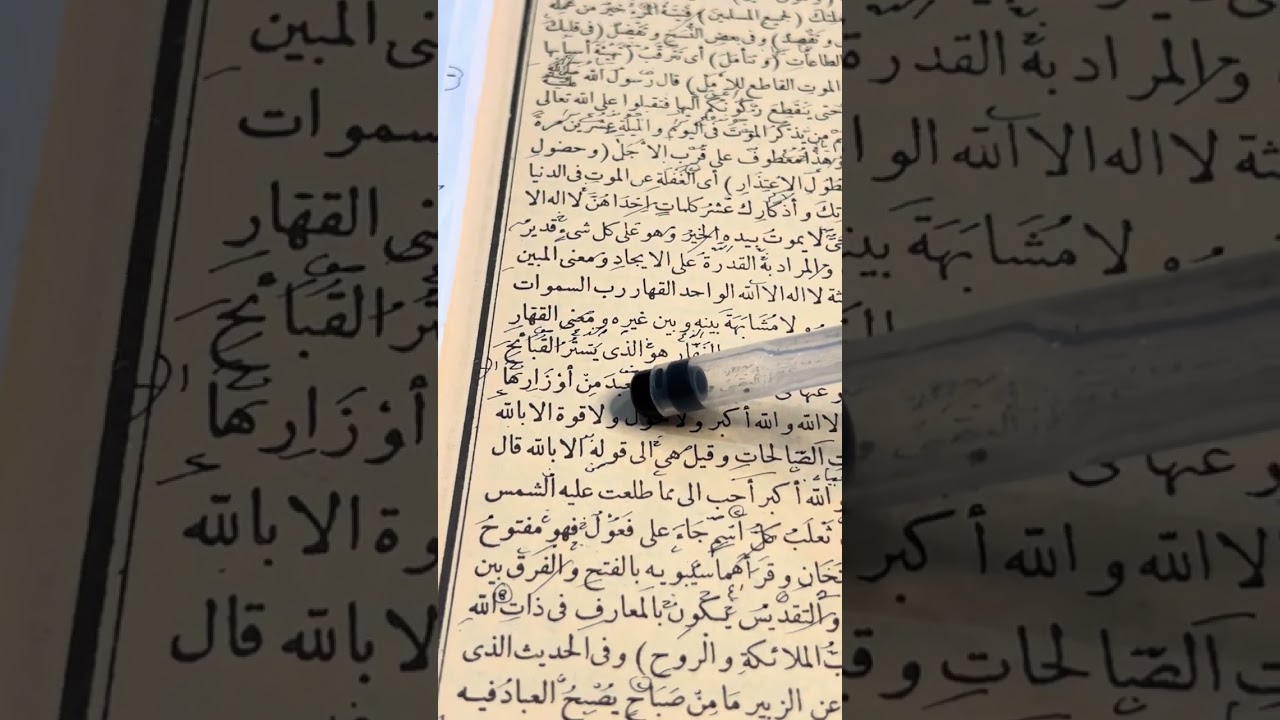 (لجميع المسلمين) فيتة المرء خير من عمله
وتقصد) وفى بعض النسخ وتفصل (فى قلبك
الطاعات (وتتأمل) أى تترقب
الموت القاطع للامل) قال رسول الله ﷺ
حتى ينقطع ركونكم اليها فتقبلوا على الله تعالى
من يذكر الموت فى اليوم والليلة عشرين مرة
وهذا معطوف على قرب الاجل (وحضول
طول الاعتذار) أى الغفلة عن الموت فى الدنيا
وأذكارك عشر كلمات احداهن لا اله الا
لا يموت بيده الخير وهو على كل شىء قدير
والمراد به القدرة على الايجاد ومعنى المبين
لا اله الا الله الواحد القهار رب السموات
لا مشابهة بينه وبين غيره ومعنى القهار
الغفار هو الذى يستر القبائح
من أوزارها
الا الله والله أكبر ولا حول ولا قوة الا بالله
الصالحات وقيل هى الى قوله الا بالله قال
والله أكبر أحب الى مما طلعت عليه الشمس
ثعلب كل اسم جاء على فعول فهو مفتوح
وقرأهما سيبويه بالفتح والفرق بين
والتقديس يكون بالمعارف فى ذات الله
الملائكة والروح) وفى الحديث الذى
عن الزبير ما من صباح يصبح العباد فيه